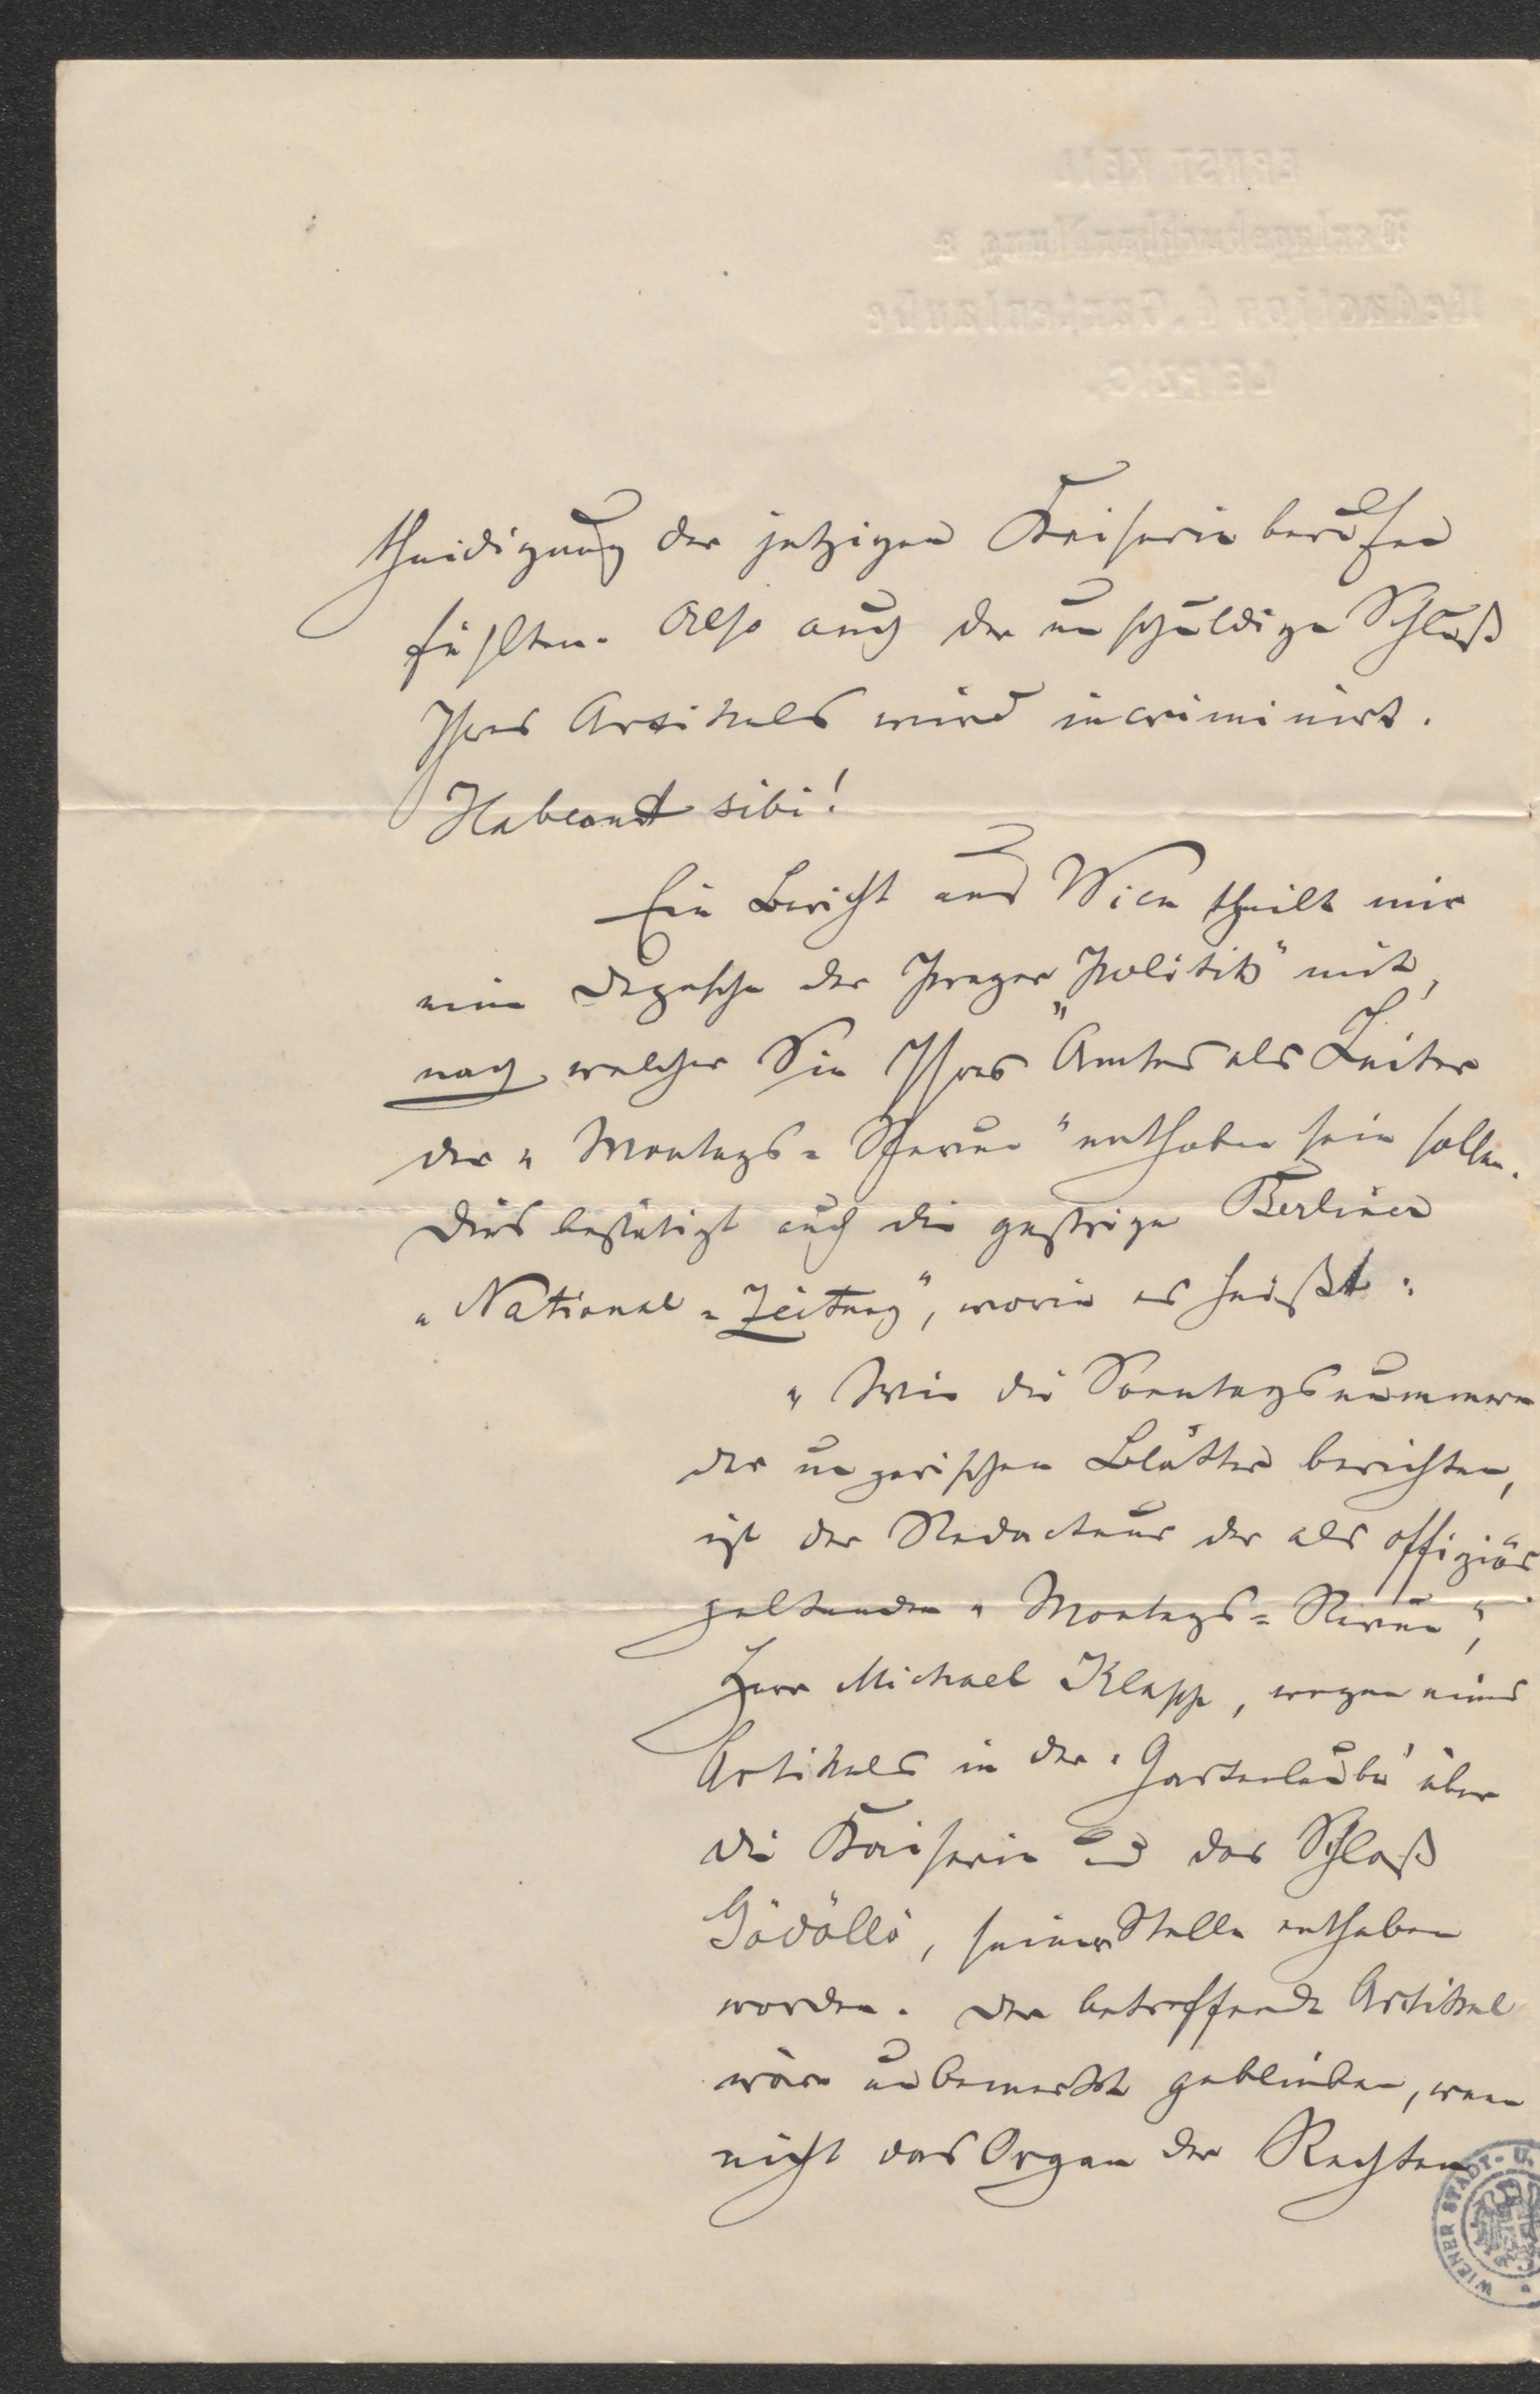 ERNST KEIL
Verlagsbuchhandlung &
Redaction d. Gartenlaube
LEIPZIG.
theidigung der jetzigen Kaiserin berufen
fühlten. Also auch der unschuldige Schluß
Ihres Artikels wird incriminirt.
Habeant sibi!
Ein Bericht aus Wien theilt mir
eine Depesche der Prager „Politik" mit,
nach welcher Sie Ihres Amtes als Leiter
der „Montags=Revue" enthoben sein sollen.
Dies bestätigt auch die gestrige Berliner
„National=Zeitung", worin es heißt:
„Wie die Sonntagsnummern
der ungarischen Blätter berichten,
ist der Redacteur der als offiziös
geltenden „Montags=Revue",
Herr Michael Klapp, wegen eines
Artikels in der „Gartenlaube" über
die Kaiserin und das Schloß
Gödöllö, seiner Stelle enthoben
worden. Der betreffende Artikel
wäre unbemerkt geblieben, wenn
nicht das Organ der Rechten
WIENER STADT- U.